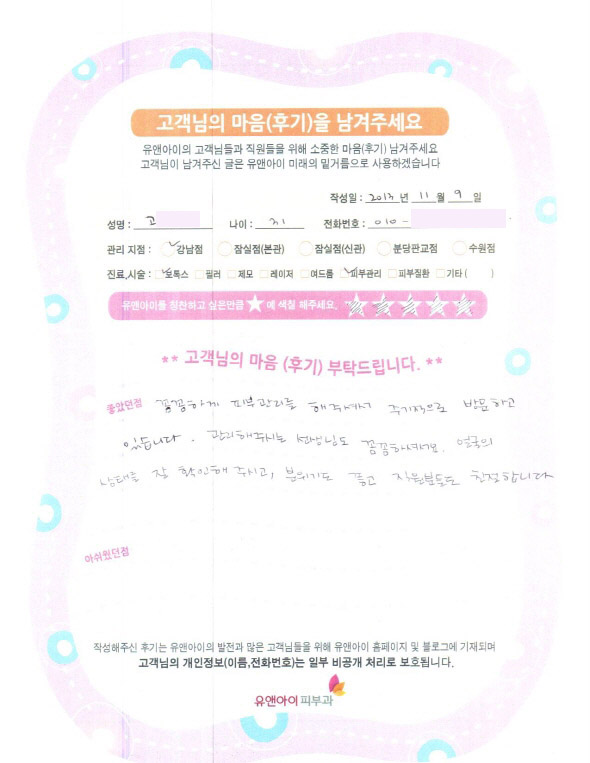 고객님의 마음(후기)을 남겨주세요
유앤아이의 고객님들과 직원들을 위해 소중한 마음(후기) 남겨주세요
고객님이 남겨주신 글은 유앤아이 미래의 밑거름으로 사용하겠습니다
작성일 : 2013 년 11 월 9 일
성명 : 고 나이 : 31 전화번호 : 010 -
관리 지점 : 강남점 잠실점(본관) 잠실점(신관) 분당판교점 수원점
진료,시술 : 보톡스 필러 제모 레이저 여드름 피부관리 피부질환 기타 ( )
유앤아이를 칭찬하고 싶은만큼 ★ 에 색칠 해주세요. ★★★★★
** 고객님의 마음 (후기) 부탁드립니다. **
좋았던점 꼼꼼하게 피부관리를 해주셔서 주기적으로 방문하고
있습니다. 관리해주시는 선생님도 꼼꼼하셔서요. 얼굴의
상태를 잘 확인해 주시고, 분위기도 좋고 직원분들도 친절합니다
아쉬웠던점
작성해주신 후기는 유앤아이의 발전과 많은 고객님들을 위해 유앤아이 홈페이지 및 블로그에 기재되며
고객님의 개인정보(이름,전화번호)는 일부 비공개 처리로 보호됩니다.
유앤아이 피부과